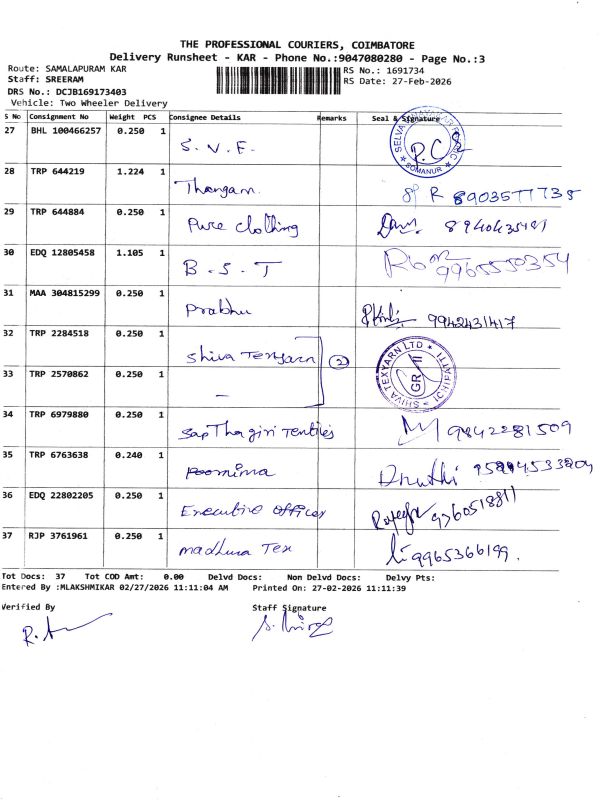 THE PROFESSIONAL COURIERS, COIMBATORE
Delivery Runsheet - KAR - Phone No.:9047080280 - Page No.:3
Route: SAMALAPURAM KAR
Staff: SREERAM
DRS No.: DCJB169173403
Vehicle: Two Wheeler Delivery
RS No.: 1691734
RS Date: 27-Feb-2026
S No Consignment No Weight PCS Consignee Details Remarks Seal & Signature
27 BHL 100466257 0.250 1 S.V.E. SOMANUR P.C
28 TRP 644219 1.224 1 Thangam. R 8903577735
29 TRP 644884 0.250 1 Pure clothing
30 EDQ 12805458 1.105 1 B.S.T 9965550354
31 MAA 304815299 0.250 1 Prabhu 9942431417
32 TRP 2284518 0.250 1 Shiva Texyarn (2) SHIVA TEXYARN LTD
33 TRP 2570862 0.250 1 –
34 TRP 6979880 0.250 1 SapThagiri Textiles 9842281509
35 TRP 6763638 0.240 1 Poornima
36 EDQ 22802205 0.250 1 Executive Officer 9360518811
37 RJP 3761961 0.250 1 madhura Tex 9965366199.
Tot Docs: 37 Tot COD Amt: 0.00 Delvd Docs: Non Delvd Docs: Delvy Pts:
Entered By :MLAKSHMIKAR 02/27/2026 11:11:04 AM Printed On: 27-02-2026 11:11:39
Verified By Staff Signature